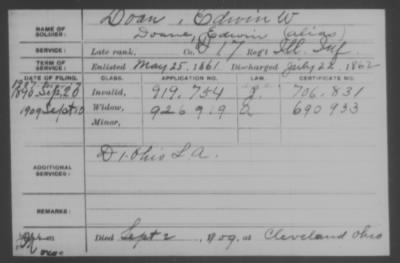 Doan, Edwin W
NAME OF SOLDIER: Doane, Edwin (alias)
SERVICE: Late rank, Co. D 17 Reg't Ill. Inf.
TERM OF SERVICE: Enlisted May 25, 1861 Discharged July 22, 1862
DATE OF FILING. CLASS. APPLICATION NO. LAW. CERTIFICATE NO.
1890 Sep. 20 Invalid, 919.754 706.831
1909 Sept 30 Widow, 926 919 690 933
Minor,
ADDITIONAL SERVICES: D 1. Ohio L A.
REMARKS:
Died Sept 2, 1909, at Cleveland Ohio